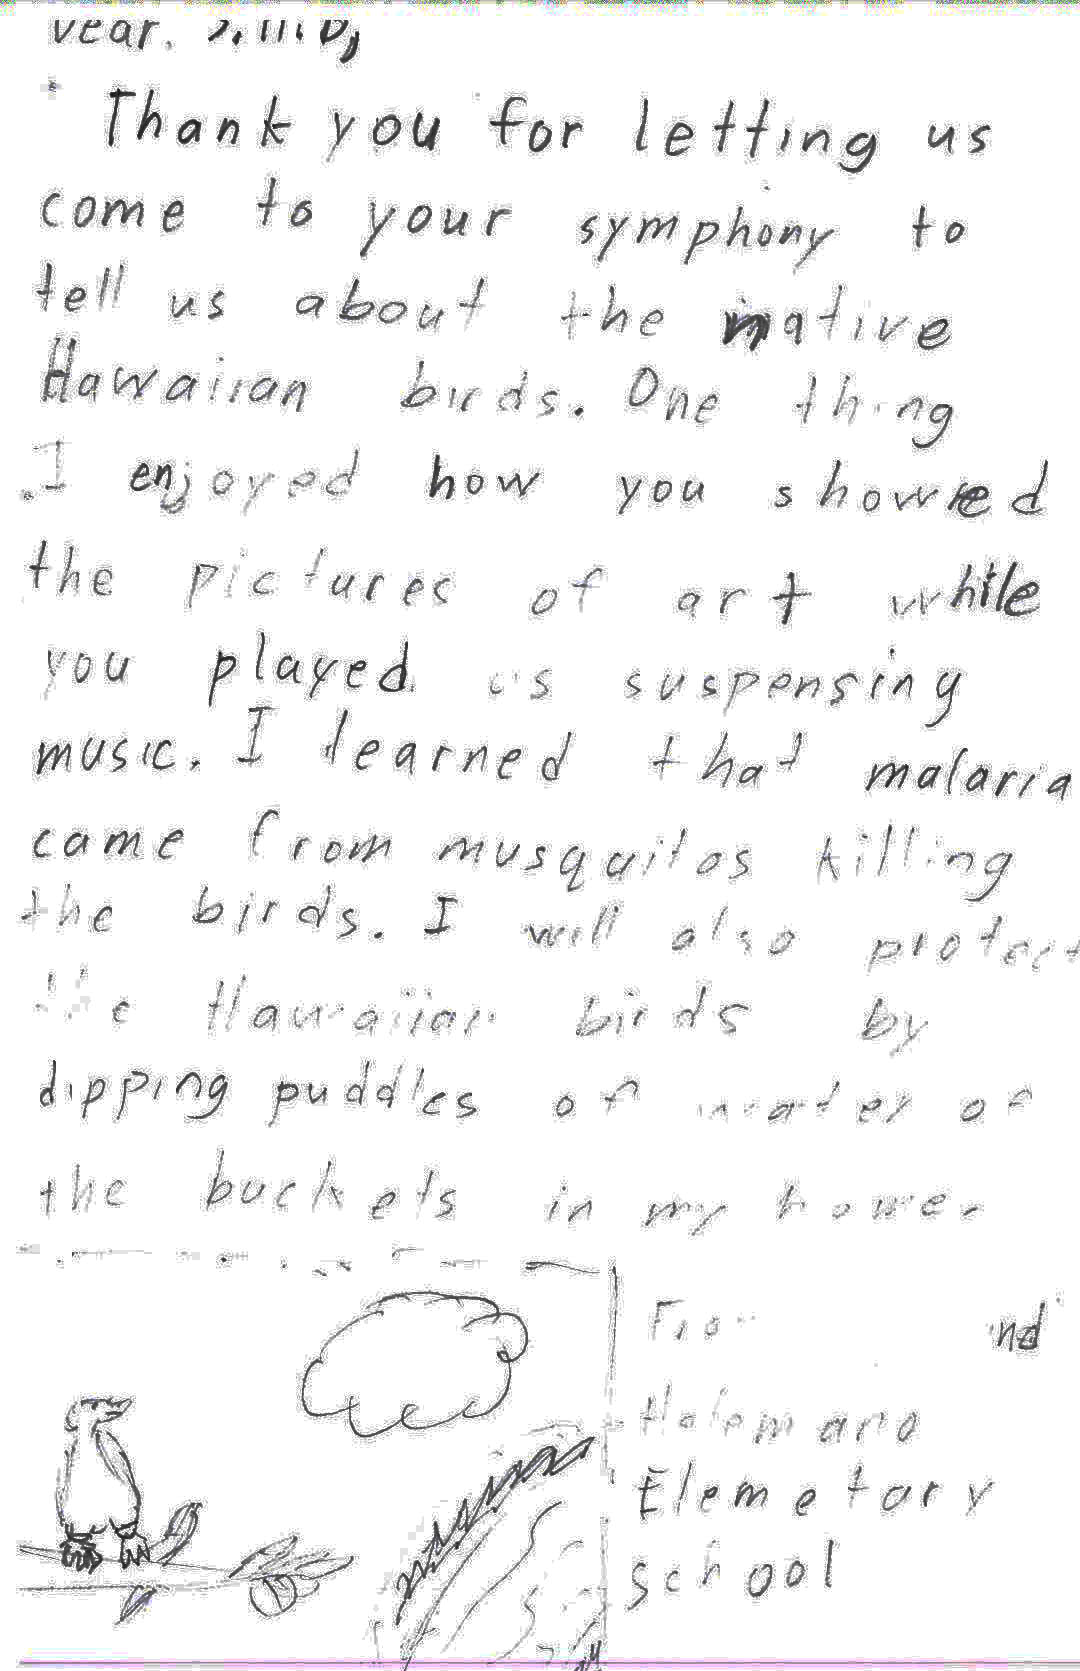 Thank you for letting us
come to your symphony to
tell us about the native
Hawaiian birds. One thing
I enjoyed how you showed
the pictures of art while
you played us suspensing
music. I learned that malaria
came from musquitos killing
the birds. I will also protect
the Hawaiian birds by
dipping puddles of water of
the buckets in my home.
Holomano
Elemetary
school